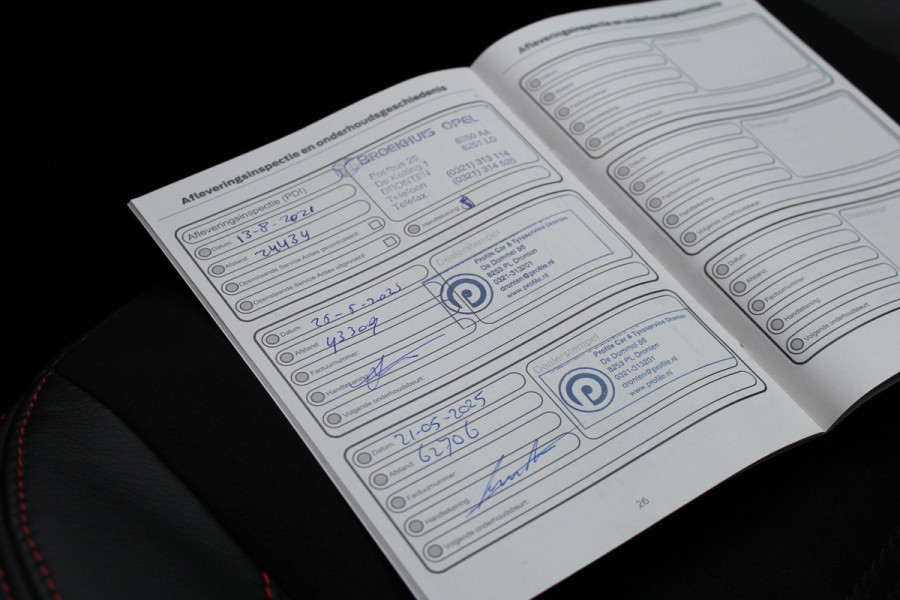 Afleveringsinspectie en onderhoudsgeschiedenis
Afleveringsinspectie (PDI)
Datum: 13-8-2021
Afstand: 24434
Openstaande Service Acties gecontroleerd:
Openstaande Service Acties uitgevoerd:
Handtekening:
BROEKHUIS OPEL
Postbus 20 8250 AA
De Ketting 1 8251 LD
DRONTEN
Telefoon (0321) 313 114
Telefax (0321) 314 520
Datum:
Afstand: 43309
Factuurnummer:
Handtekening:
Volgende onderhoudsbeurt:
Dealerstempel
Profile Car & Tyreservice Dronten
De Dommel 56
8253 PL Dronten
0321-313201
dronten@profile.nl
www.profile.nl
Datum: 21-05-2025
Afstand: 62706
Factuurnummer:
Handtekening:
Volgende onderhoudsbeurt:
Dealerstempel
Profile Car & Tyreservice Dronten
De Dommel 56
8253 PL Dronten
0321-313201
dronten@profile.nl
www.profile.nl
26
Afleveringsinspectie en onderhoudsgeschiedenis
Datum:
Afstand:
Factuurnummer:
Handtekening:
Volgende onderhoudsbeurt:
Datum:
Afstand:
Factuurnummer:
Handtekening:
Volgende onderhoudsbeurt:
Datum:
Afstand:
Factuurnummer:
Handtekening:
Volgende onderhoudsbeurt: